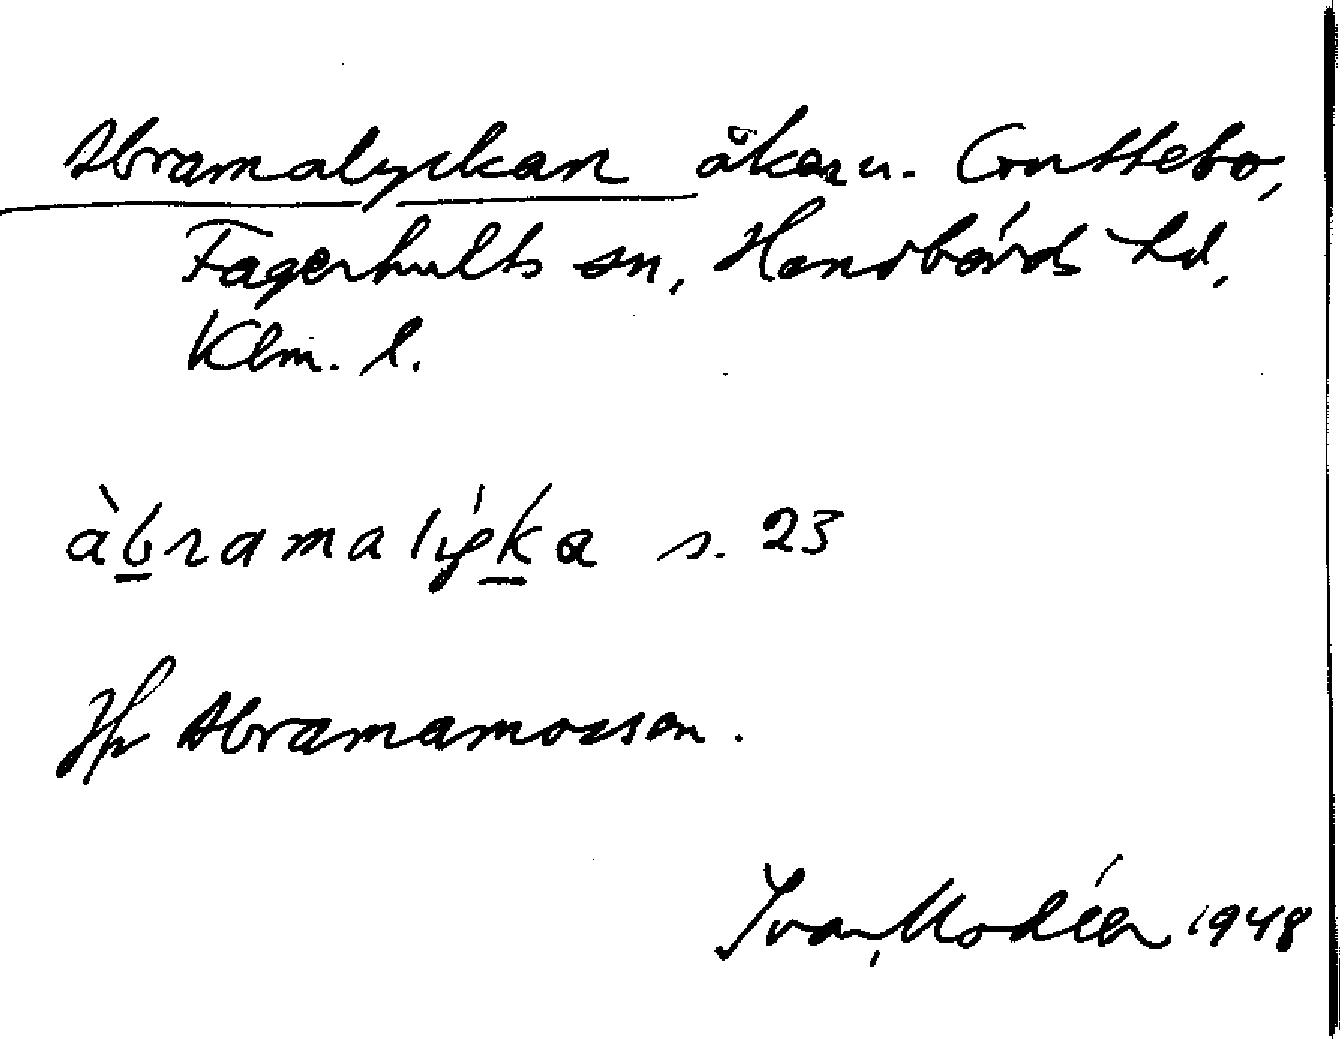 Abramalyckan åker u. Gruttebo,
Fagerhults sn, Handbörds hd,
Klm. l.
àbramalýka s. 23
Jfr Abramamossen.
Ivar Modéer 1948